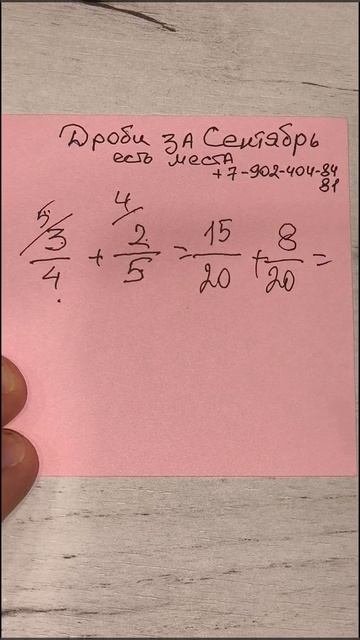 Дроби за Сентябрь
есть места
+7-902-404-84
81
5/3/4 + 4/2/5 = 15/20 + 8/20 =